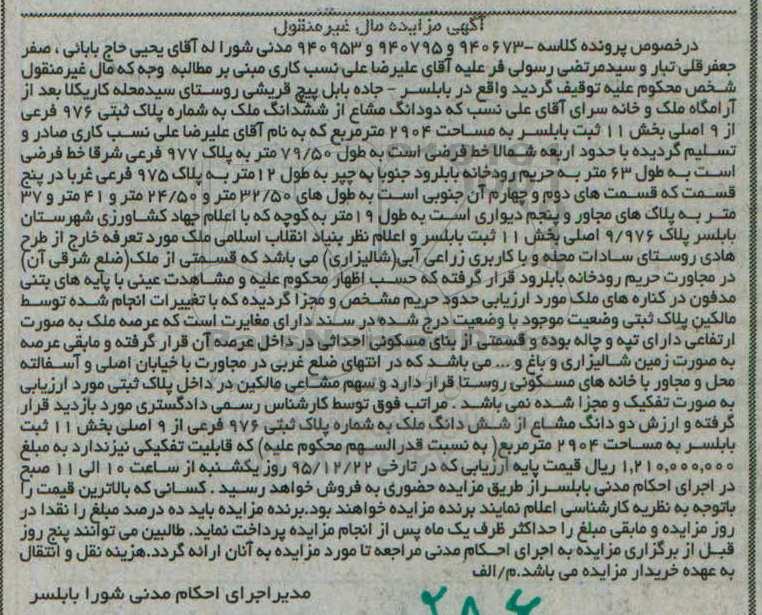 آگهی مزایده مال غیرمنقول
درخصوص پرونده کلاسه -۹۴۰۶۷۳ و ۹۴۰۷۹۵ و ۹۴۰۹۵۳ مدنی شورا له آقای یحیی حاج بابائی ، صفر
جعفرقلی تبار و سیدمرتضی رسولی فر علیه آقای علیرضا علی نسب کاری مبنی بر مطالبه وجه که مال غیرمنقول
شخص محکوم علیه توقیف گردید واقع در بابلسر - جاده بابل پیچ قریشی روستای سیدمحله کاریکلا بعد از
آرامگاه ملک و خانه سرای آقای علی نسب که دودانگ مشاع از ششدانگ ملک به شماره پلاک ثبتی ۹۷۶ فرعی
از ۹ اصلی بخش ۱۱ ثبت بابلسر به مساحت ۲۹۰۴ مترمربع که به نام آقای علیرضا علی نسب کاری صادر و
تسلیم گردیده با حدود اربعه شمالا خط فرضی است به طول ۷۹/۵۰ متر به پلاک ۹۷۷ فرعی شرقا خط فرضی
است به طول ۶۳ متر به حریم رودخانه بابلرود جنوبا به چپر به طول ۱۲متر به پلاک ۹۷۵ فرعی غربا در پنج
قسمت که قسمت های دوم و چهارم آن جنوبی است به طول های ۳۲/۵۰ متر و ۲۴/۵۰ متر و ۴۱ متر و ۳۷
متر به پلاک های مجاور و پنجم دیواری است به طول ۱۹متر به کوچه که با اعلام جهاد کشاورزی شهرستان
بابلسر پلاک ۹/۹۷۶ اصلی بخش ۱۱ ثبت بابلسر و اعلام نظر بنیاد انقلاب اسلامی ملک مورد تعرفه خارج از طرح
هادی روستای سادات محله و با کاربری زراعی آبی(شالیزاری) می باشد که قسمتی از ملک(ضلع شرقی آن)
در مجاورت حریم رودخانه بابلرود قرار گرفته که حسب اظهار محکوم علیه و مشاهدت عینی با پایه های بتنی
مدفون در کناره های ملک مورد ارزیابی حدود حریم مشخص و مجزا گردیده که با تغییرات انجام شده توسط
مالکین پلاک ثبتی وضعیت موجود با وضعیت درج شده در سند دارای مغایرت است که عرصه ملک به صورت
ارتفاعی دارای تپه و چاله بوده و قسمتی از بنای مسکونی احداثی در داخل عرصه آن قرار گرفته و مابقی عرصه
به صورت زمین شالیزاری و باغ و ... می باشد که در انتهای ضلع غربی در مجاورت با خیابان اصلی و آسفالته
محل و مجاور با خانه های مسکونی روستا قرار دارد و سهم مشاعی مالکین در داخل پلاک ثبتی مورد ارزیابی
به صورت تفکیک و مجزا شده نمی باشد . مراتب فوق توسط کارشناس رسمی دادگستری مورد بازدید قرار
گرفته و ارزش دو دانگ مشاع از شش دانگ ملک به شماره پلاک ثبتی ۹۷۶ فرعی از ۹ اصلی بخش ۱۱ ثبت
بابلسر به مساحت ۲۹۰۴ مترمربع( به نسبت قدرالسهم محکوم علیه) که قابلیت تفکیکی نیزندارد به مبلغ
۱,۲۱۰,۰۰۰,۰۰۰ ریال قیمت پایه ارزیابی که در تارخی ۹۵/۱۲/۲۲ روز یکشنبه از ساعت ۱۰ الی ۱۱ صبح
در اجرای احکام مدنی بابلسراز طریق مزایده حضوری به فروش خواهد رسید . کسانی که بالاترین قیمت را
باتوجه به نظریه کارشناسی اعلام نمایند برنده مزایده خواهند بود.برنده مزایده باید ده درصد مبلغ را نقدا در
روز مزایده و مابقی مبلغ را حداکثر ظرف یک ماه پس از انجام مزایده پرداخت نماید. طالبین می توانند پنج روز
قبل از برگزاری مزایده به اجرای احکام مدنی مراجعه تا مورد مزایده به آنان ارائه گردد.هزینه نقل و انتقال
به عهده خریدار مزایده می باشد.م/الف
مدیراجرای احکام مدنی شورا بابلسر
۲۸۶